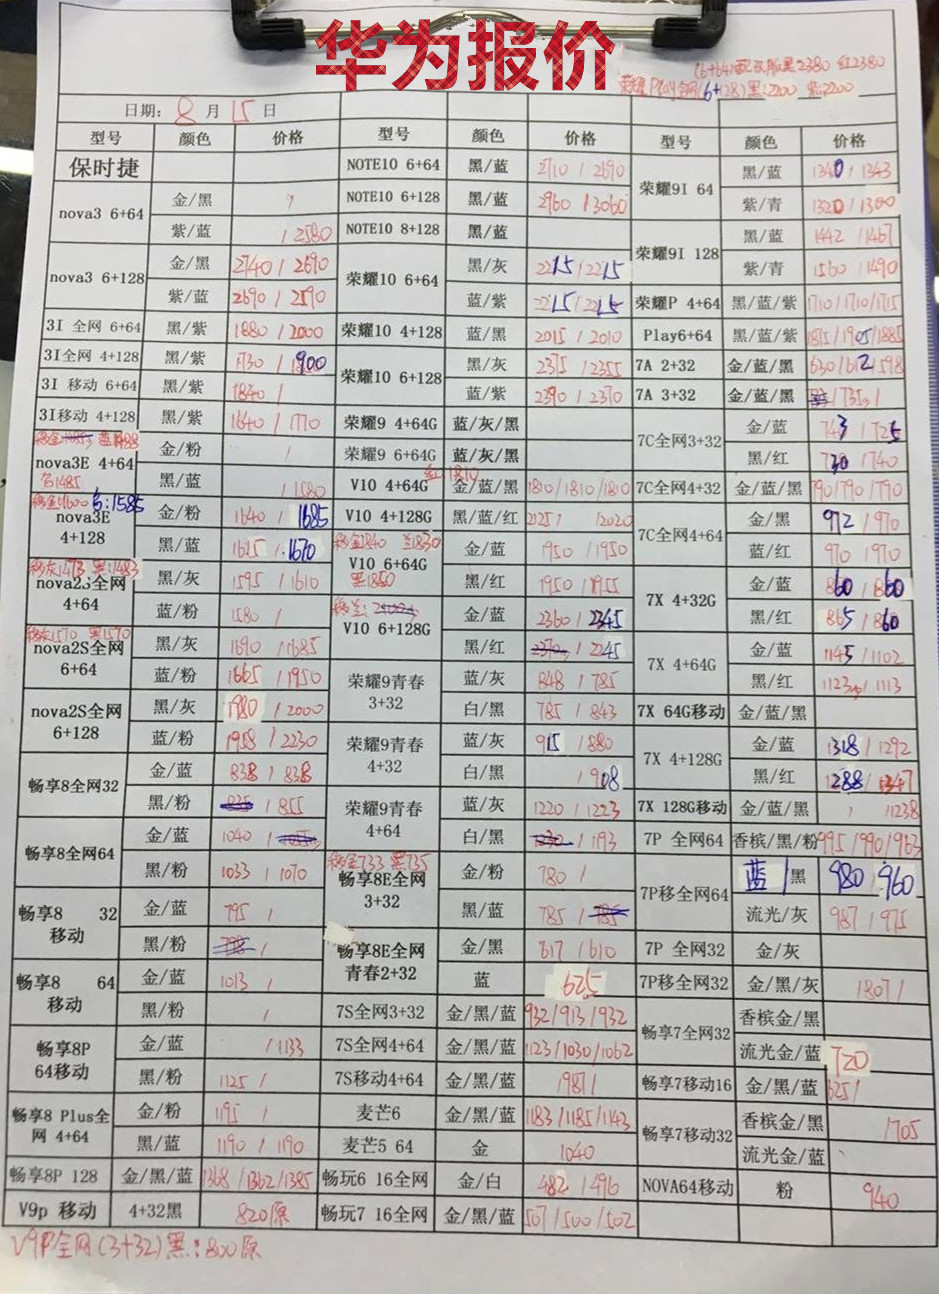 华为报价
(6+64)配双版黑2380 红2380
荣耀Play全网(6+128)黑:2200 紫:2200
日期: 8月15日
型号 颜色 价格 型号 颜色 价格 型号 颜色 价格
保时捷 NOTE10 6+64 黑/蓝 2710 / 2690 荣耀9I 64 黑/蓝 1340 / 1343
nova3 6+64 金/黑 / NOTE10 6+128 黑/蓝 2960 / 3060 紫/青 1320 / 1300
紫/蓝 / 2580 NOTE10 8+128 黑/蓝 荣耀9I 128 黑/蓝 1442 / 1467
nova3 6+128 金/黑 2740 / 2690 荣耀10 6+64 黑/灰 2215 / 2215 紫/青 1560 / 1490
紫/蓝 2690 / 2590 蓝/紫 2215 / 2215 荣耀P 4+64 黑/蓝/紫 1710/1710/1715
3I 全网 6+64 黑/紫 1880 / 2000 荣耀10 4+128 蓝/黑 2015 / 2010 Play6+64 黑/蓝/紫 1815/1905/1885
3I全网 4+128 黑/紫 1730 / 1900 荣耀10 6+128 黑/灰 2375 / 2355 7A 2+32 金/蓝/黑 630/612/598
3I 移动 6+64 黑/紫 1840 / 蓝/紫 2390 / 2370 7A 3+32 金/蓝/黑 /735/
3I移动 4+128 黑/紫 1640 / 1770 荣耀9 4+64G 蓝/灰/黑 7C全网3+32 金/蓝 743 / 725
nova3E 4+64 金/粉 / 荣耀9 6+64G 蓝/灰/黑 黑/红 730 / 740
红:1810
黑/蓝 / 1580 V10 4+64G 金/蓝/黑 1810/1810/1810 7C全网4+32 金/蓝/黑 790/790/790
移金1600 白:1585
nova3E 4+128 金/粉 1640 / 1685 V10 4+128G 黑/蓝/红 2125/ /2020 7C全网4+64 金/黑 972 / 970
移金1840 兰1830
黑/蓝 1625 / 1670 V10 6+64G 金/蓝 1950 / 1950 蓝/红 970 / 970
移灰1573 黑:1483
黑1850
nova2S全网 4+64 黑/灰 1595 / 1610 黑/红 1950 / 1955 7X 4+32G 金/蓝 860 / 860
蓝/粉 1580 / V10 6+128G 金/蓝 2360 / 2345 黑/红 865 / 860
移灰1570 黑1570
nova2S全网 6+64 黑/灰 1690 / 1685 黑/红 / 2245 7X 4+64G 金/蓝 1145 / 1102
蓝/粉 1665 / 1950 荣耀9青春 3+32 蓝/灰 848 / 785 黑/红 1123 / 1113
nova2S全网 6+128 黑/灰 1980 / 2000 白/黑 785 / 843 7X 64G移动 金/蓝/黑
蓝/粉 1958 / 2230 荣耀9青春 4+32 蓝/灰 915 / 880 7X 4+128G 金/蓝 1318 / 1292
畅享8全网32 金/蓝 838 / 838 白/黑 / 908 黑/红 1288 / 1347
黑/粉 / 855 荣耀9青春 4+64 蓝/灰 1220 / 1223 7X 128G移动 金/蓝/黑 / /1238
畅享8全网64 金/蓝 1040 / 白/黑 / 1193 7P 全网64 香槟/黑/粉 995/990/963
移金733 黑735
黑/粉 1033 / 1070 畅享8E全网 3+32 金/粉 780 / 7P移全网64 蓝/黑 980/960
畅享8 32移动 金/蓝 795 / 黑/蓝 785 / 流光/灰 987 / 975
黑/粉 / 畅享8E全网 青春2+32 金/黑 617 / 610 7P 全网32 金/灰
畅享8 64移动 金/蓝 1013 / 蓝 625 7P移全网32 金/黑/灰 1807/
黑/粉 / 7S全网3+32 金/黑/蓝 932/913/932 畅享7全网32 香槟金/黑
畅享8P 64移动 金/蓝 / 1133 7S全网4+64 金/黑/蓝 1123/1030/1062 流光金/蓝 720
黑/粉 1125 / 7S移动4+64 金/黑/蓝 /987/ 畅享7移动16 金/黑/蓝 625/
畅享8 Plus全网 4+64 金/粉 1195 / 麦芒6 金/黑/蓝 1183/1185/1143 畅享7移动32 香槟金/黑 /705
黑/蓝 1190 / 1190 麦芒5 64 金 1040 流光金/蓝
畅享8P 128 金/黑/蓝 1368/1362/1385 畅玩6 16全网 金/白 482 / 496 NOVA64移动 粉 940
V9p 移动 4+32黑 820原 畅玩7 16全网 金/黑/蓝 507/500/502
V9P全网(3+32)黑:800原